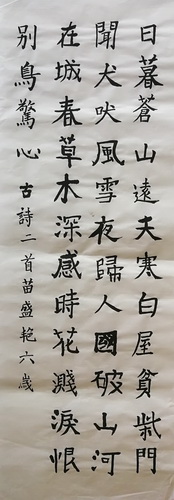 日暮蒼山遠夫寒白屋貧柴門
聞犬吠風雪夜歸人國破山河
在城春草木深感時花濺淚恨
別鳥驚心古詩二首苗盛艳六歲